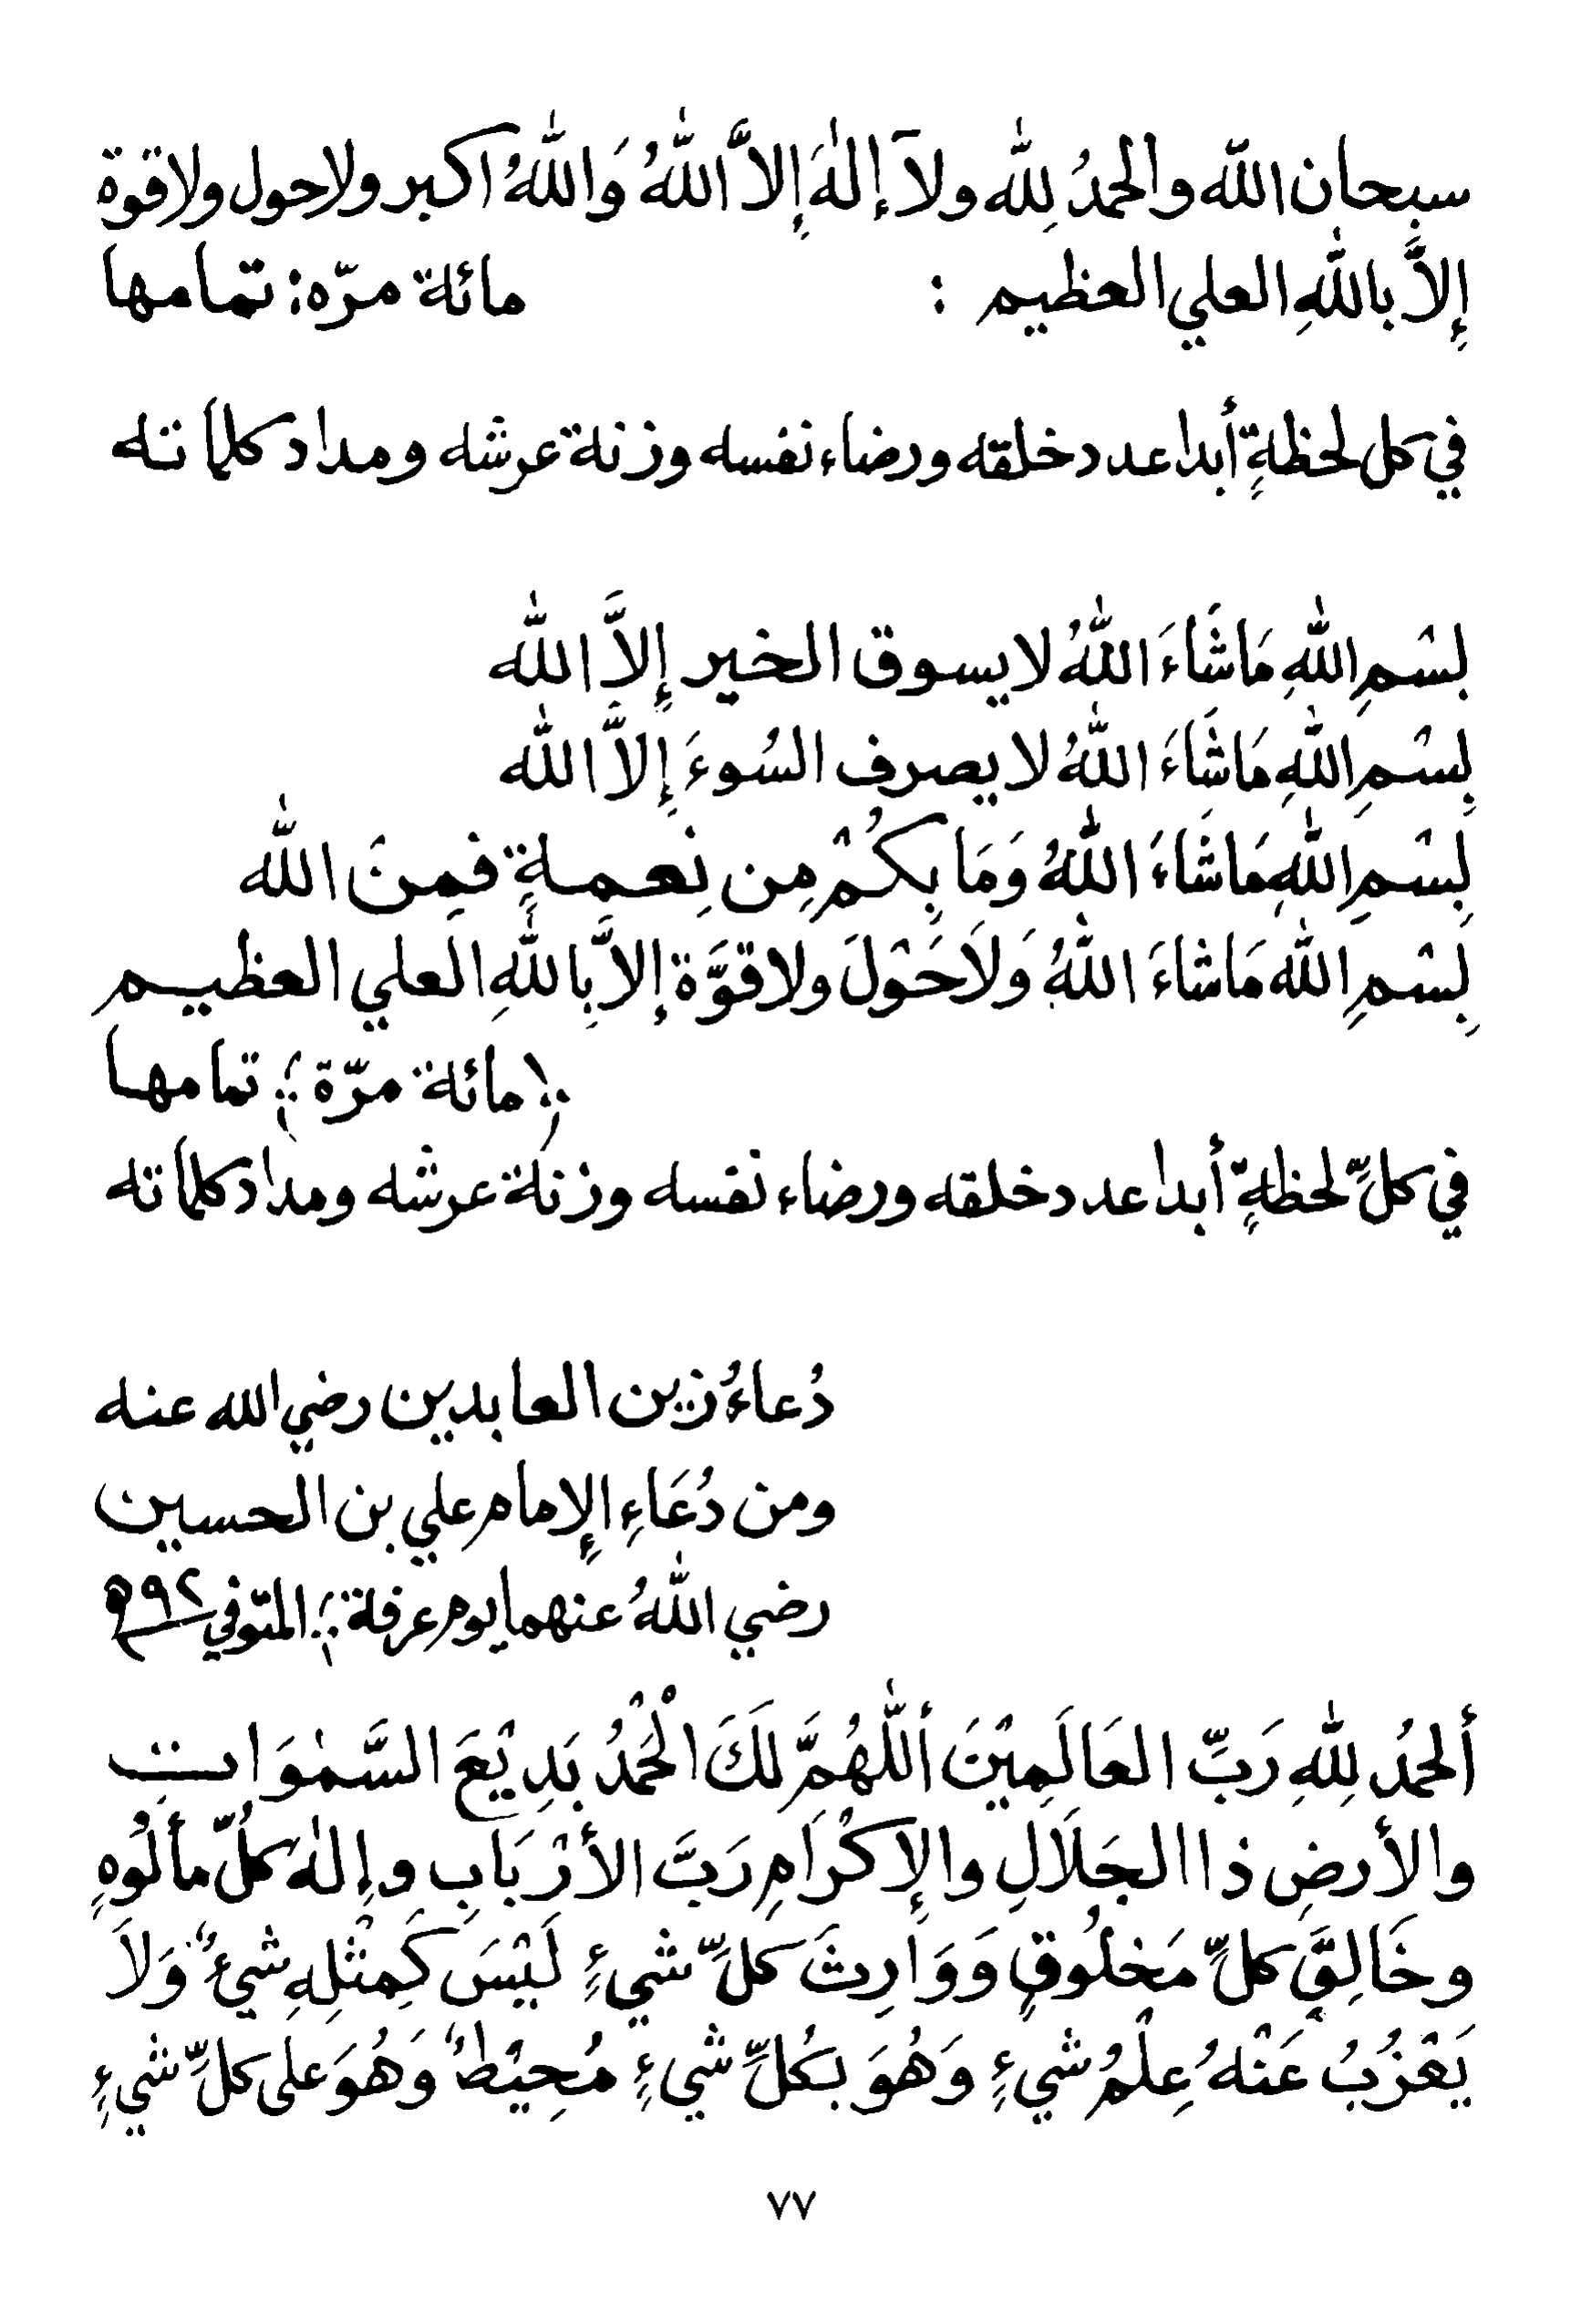 سبحان الله والحمدُ لِلّٰه ولآ إلٰهَ إِلاَّ اللّٰهُ وَاللّٰهُ اكبر ولاحول ولاقوة
إِلاَّ باللّٰهِ العلي العظيم : مائة مرّه: تمامها
في كل لحظةٍ أبدا عدد خلقه ورضاء نفسه وزنة عرشه ومداد كلماته
بسْمِ اللّٰهِ مَاشَاءَ اللّٰهُ لا يسوق الخير إِلاَّ اللّٰه
بِسْمِ اللّٰهِ مَاشَاءَ اللّٰهُ لا يصرف السُوءَ إِلاَّ اللّٰه
بِسْمِ اللّٰهِ مَاشَاءَ اللّٰهُ وَمَا بِكُمْ مِن نِعمةٍ فمِنَ اللّٰه
بِسْمِ اللّٰه مَاشاءَ اللّٰهُ وَلَاحَوْلَ ولا قوَّة إلاَّ بِاللّٰهِ العلي العظيم
﴿مائة مرّة﴾ تمامها
في كلِّ لحظةٍ أبدا عدد خلقه ورضاء نفسه وزنة عرشه ومداد كلماته
دُعاءُ زين العابدين رضي الله عنه
ومن دُعَاءِ الإمام علي بن الحسين
رضي اللّٰهُ عنهما يوم عرفة؛ المتوفي ٩٢ھ
ألحمدُ لِلّٰهِ رَبِّ العَالَمِيْنَ أللّٰهُمَّ لَكَ الْحَمْدُ بَدِيْعَ السَّمٰوَاتِ
والأرضِ ذا الجَلَالِ والإكْرَامِ رَبَّ الأرْبَابِ وإلٰهَ كُلِّ مألُوهٍ
وخَالِقَ كلِّ مَخلُوقٍ وَوَارِثَ كلِّ شيءٍ لَيْسَ كَمِثْلِهِ شيءٌ وَلَا
يَعْزُبُ عَنْهُ عِلْمُ شيءٍ وَهُوَ بكُلِّ شيءٍ مُحِيْطٌ وَهُوَ على كلِّ شيءٍ
٧٧